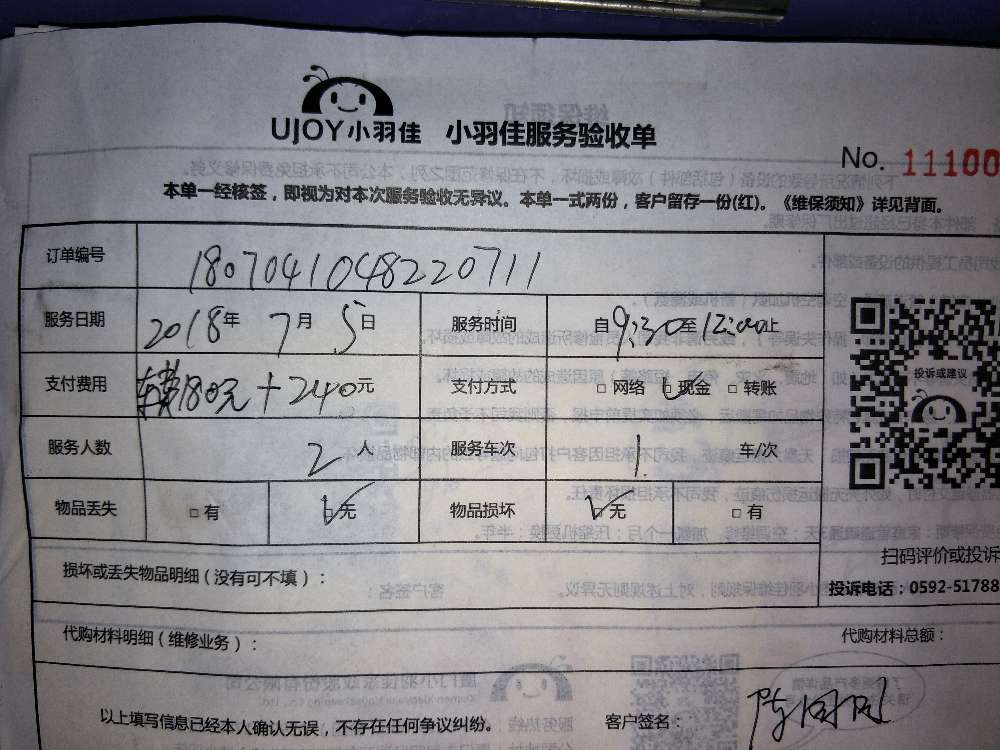 UJOY小羽佳 小羽佳服务验收单
No. 11100
本单一经核签，即视为对本次服务验收无异议。本单一式两份，客户留存一份(红)。《维保须知》详见背面。
订单编号 1807041048220711
服务日期 2018年 7月 5日 服务时间 自9:30至12:00止
支付费用 180元+240元 支付方式 □网络 ☑现金 □转账
投诉或建议
服务人数 2人 服务车次 1 车/次
物品丢失 □有 ☑无 物品损坏 ☑无 □有
扫码评价或投诉
损坏或丢失物品明细（没有可不填）：
投诉电话：0592-51788
代购材料明细（维修业务）： 代购材料总额：
以上填写信息已经本人确认无误，不存在任何争议纠纷。 客户签名：